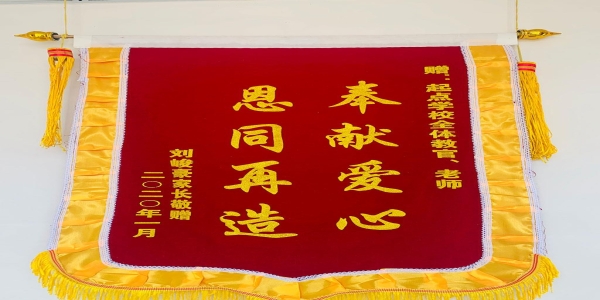 赠：起点学校全体教官、老师
奉献爱心
恩同再造
刘峻豪家长敬赠
二〇二〇年一月